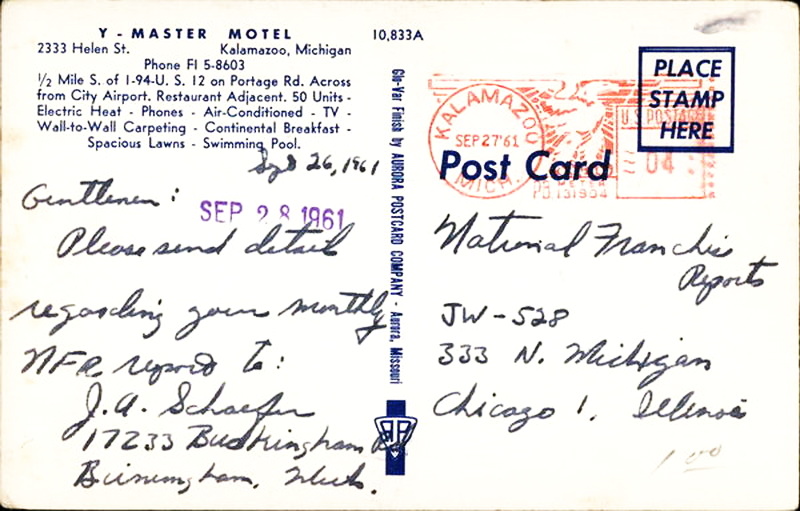 Y - MASTER MOTEL
2333 Helen St. Kalamazoo, Michigan
Phone FI 5-8603
½ Mile S. of I-94-U. S. 12 on Portage Rd. Across
from City Airport. Restaurant Adjacent. 50 Units -
Electric Heat - Phones - Air-Conditioned - TV -
Wall-to-Wall Carpeting - Continental Breakfast -
Spacious Lawns - Swimming Pool.
Sept 26, 1961
Gentlemen:
SEP 28 1961
Please send detail
regarding your monthly
NFR report to:
J.A. Schaefer
17233 Buckingham Rd
Birmingham, Mich.
10,833A
Glo-Var Finish by AURORA POSTCARD COMPANY - Aurora, Missouri
KALAMAZOO
SEP 27 '61
MICH.
U.S. POSTAGE
04
PLACE
STAMP
HERE
Post Card
National Franchise
Reports
JW-528
333 N. Michigan
Chicago 1, Illinois
1.00